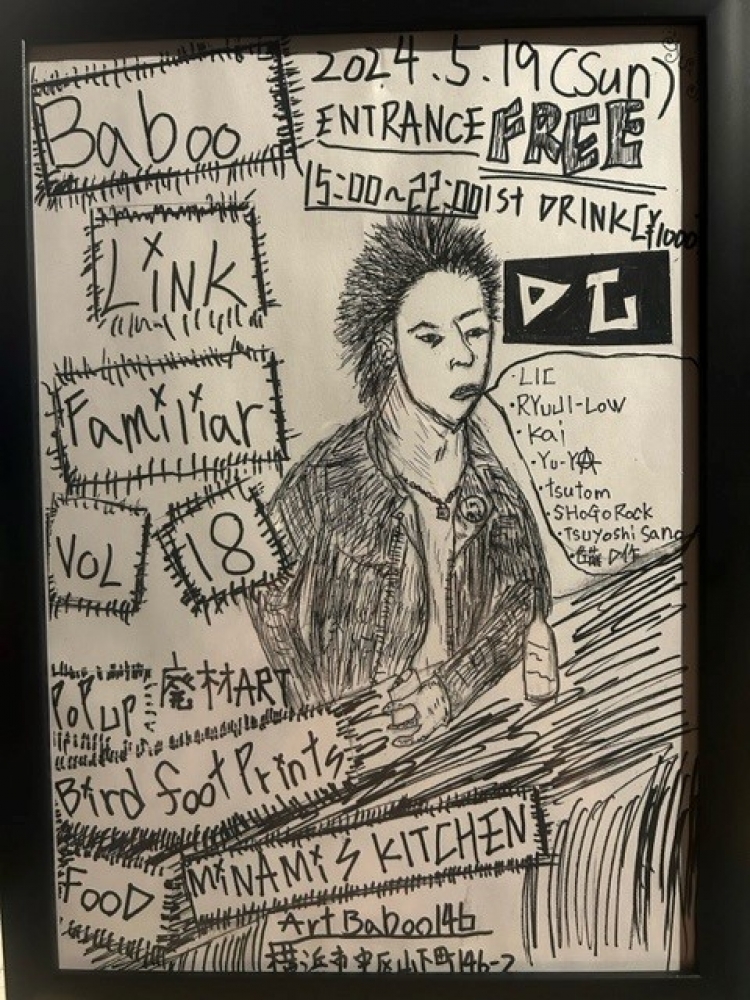 Baboo
Link
Familiar
VOL 18
2024.5.19(Sun)
ENTRANCE FREE
15:00~22:00 1st DRINK[¥1000
DJ
・LIC
・RYUJI-LOW
・Kai
・Yu-YA
・tsutom
・SHOGO ROCK
・Tsuyoshi Sano
POPUP 廃材ART
Bird foot Prints
FOOD MiNAMi'S KITCHEN
Art Baboo146
横浜市中区山下町146-2